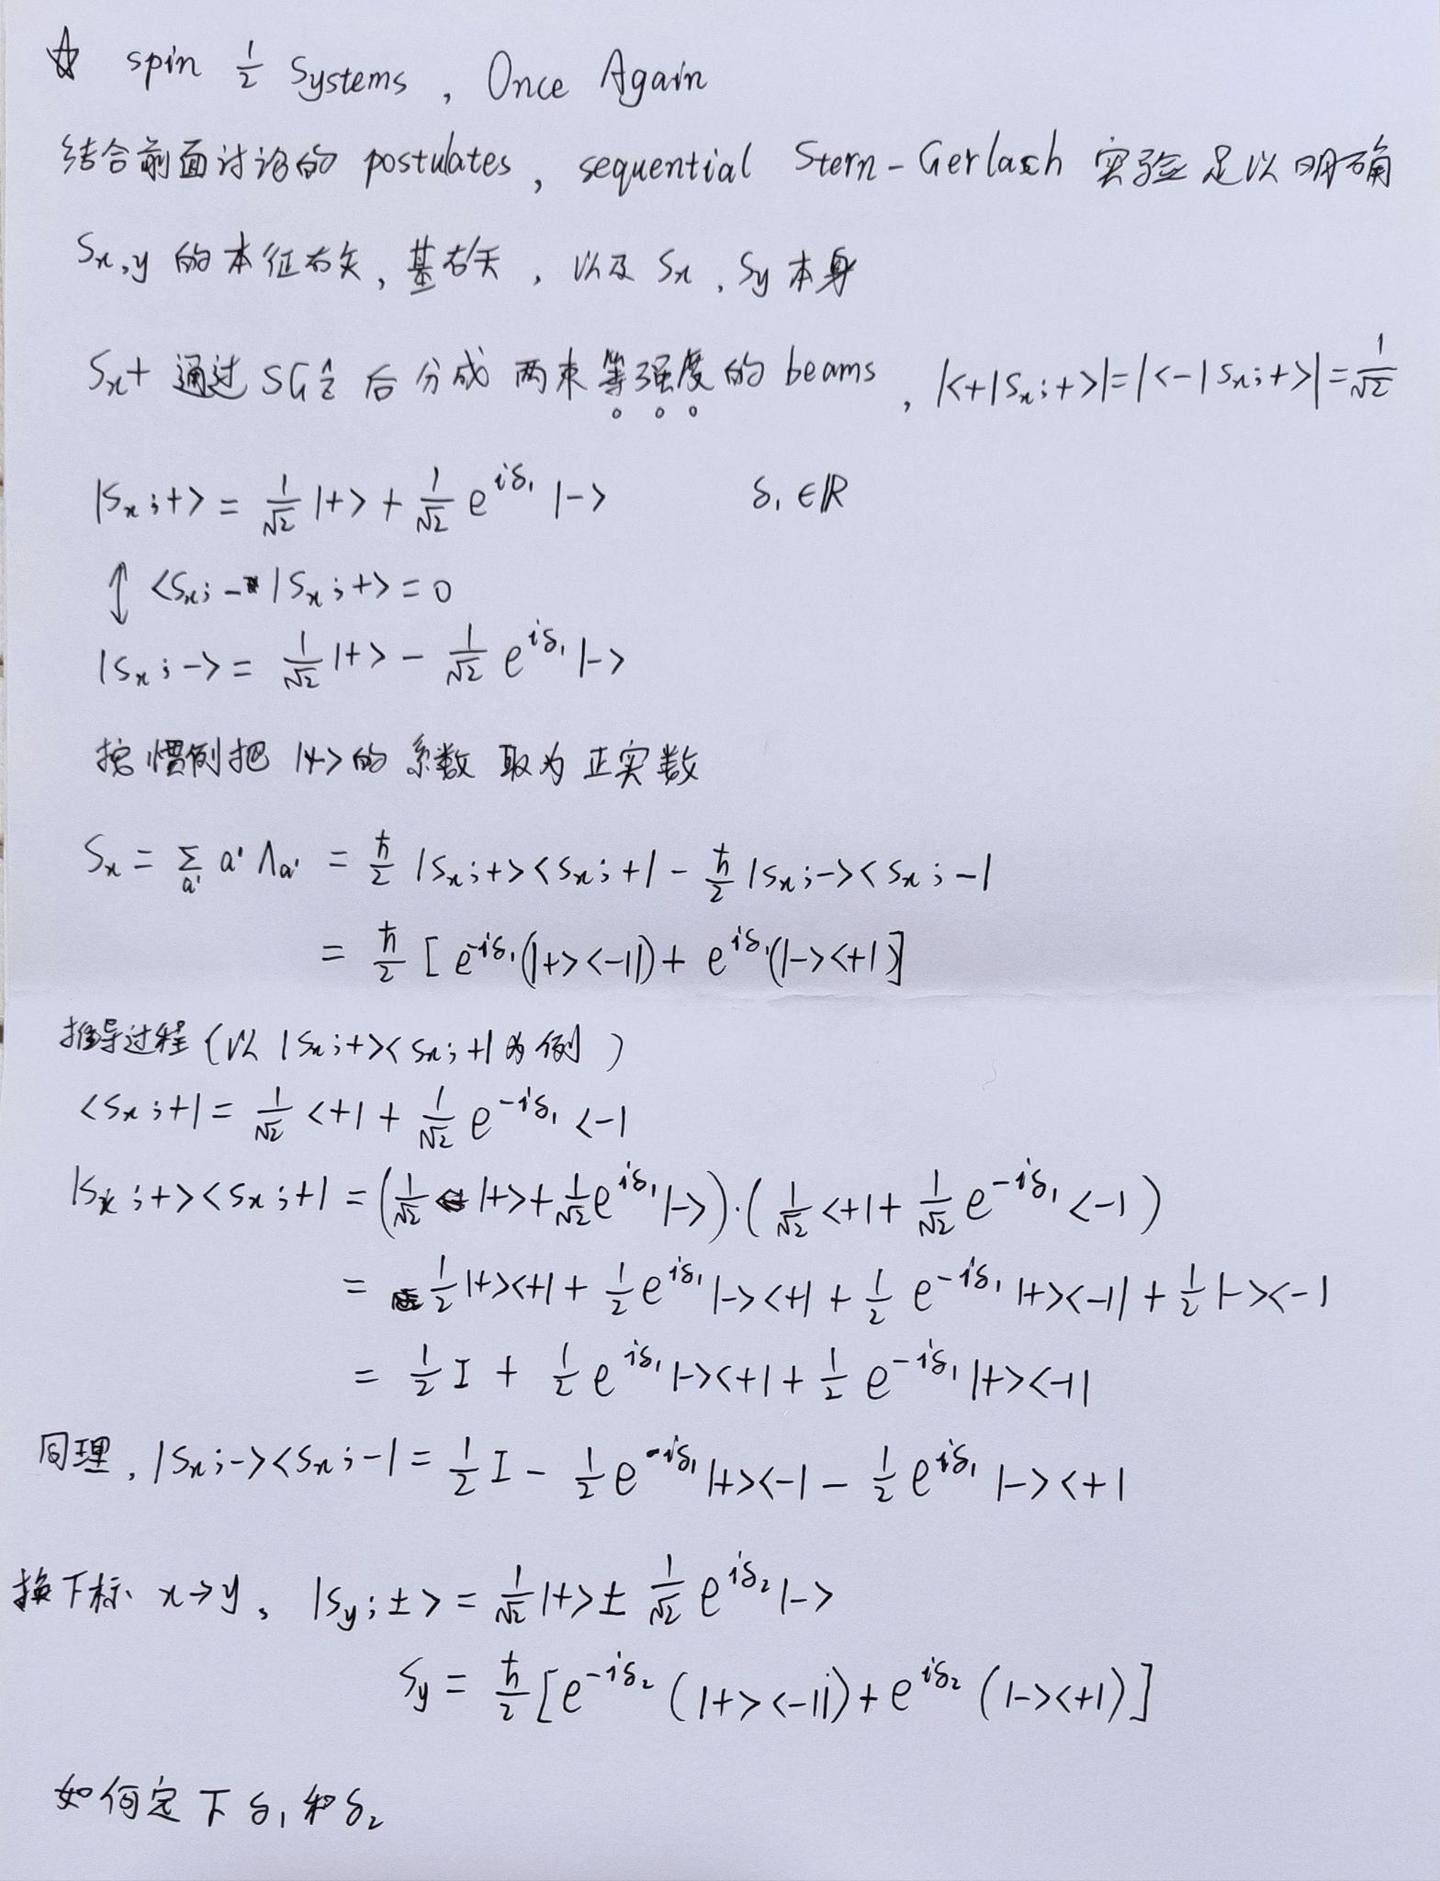 ☆ spin 1/2 Systems , Once Again
结合前面讨论的 postulates , sequential Stern-Gerlach 实验足以明确
Sx,y 的本征右矢, 基右矢 , 以及 Sx , Sy 本身
Sx+ 通过 SGẑ 后分成 两束等强度的 beams , |<+|Sx;+>|=|<-|Sx;+>|=1/√2
|Sx;+> = 1/√2 |+> + 1/√2 e^{iδ₁} |-> δ₁ ∈ℝ
↕ <Sx;-|Sx;+>=0
|Sx;-> = 1/√2 |+> - 1/√2 e^{iδ₁} |->
按惯例把 |+>的 系数 取为 正实数
Sx = Σ_{a'} a' Λ_{a'} = ħ/2 |Sx;+><Sx;+| - ħ/2 |Sx;-><Sx;-|
= ħ/2 [ e^{-iδ₁}(|+><-|) + e^{iδ₁}(|-><+|)]
推导过程 (以 |Sx;+><Sx;+| 为例 )
<Sx;+| = 1/√2 <+| + 1/√2 e^{-iδ₁} <-|
|Sx;+><Sx;+| = (1/√2 |+> + 1/√2 e^{iδ₁} |->)·( 1/√2 <+| + 1/√2 e^{-iδ₁} <-| )
= 1/2 |+><+| + 1/2 e^{iδ₁} |-><+| + 1/2 e^{-iδ₁} |+><-| + 1/2 |-><-|
= 1/2 I + 1/2 e^{iδ₁} |-><+| + 1/2 e^{-iδ₁} |+><-|
同理, |Sx;-><Sx;-| = 1/2 I - 1/2 e^{-iδ₁} |+><-| - 1/2 e^{iδ₁} |-><+|
换下标 x→y, |Sy;±> = 1/√2 |+> ± 1/√2 e^{iδ₂} |->
Sy = ħ/2 [e^{-iδ₂} (|+><-|) + e^{iδ₂} (|-><+|)]
如何定下 δ₁ 和 δ₂